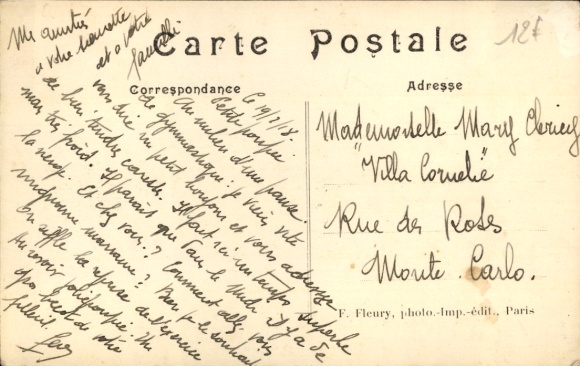 Mes amitiés
a votre
et a votre
famille
12F
Carte Postale
Correspondance
Adresse
le 19/2/18.
Petite poupée
Au milieu d'une pause
de gymnastique, je viens vite
vous dire un petit bonjour et vous adresse
de bien tendres caresses. Il fait ici un temps superbe
mais très froid. Il paraît que dans le Midi il y a de
la neige. Et chez vous?? Comment allez vous
mignonne marraine? Bien je le souhait
On siffle la reprise de l'exercice
Au revoir poupée. Un
gros baiser de votre
filleul.
Mademoiselle Mary Clericy
"Villa Cornelie"
Rue des Roses
Monte-Carlo.
F. Fleury, photo.-Imp.-édit., Paris